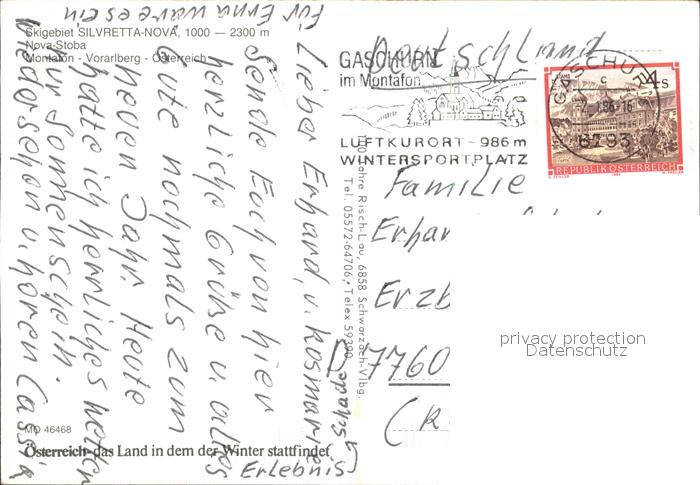 Skigebiet SILVRETTA-NOVA, 1000 — 2300 m
Nova-Stoba
Montafon - Vorarlberg - Österreich
Lieber Erhard, u. Rosmarie
Sende Euch von hier
herzliche Grüße u. alles
Gute nochmals zum
neuen Jahr. Heute
hatte ich herrliches
nur Sonnenschein.
schon u. hören
Für Erna wäre es ein
Erlebnis
schade
MO 46468
Österreich-das Land in dem der Winter stattfindet
Jahre Risch-Lau, 6858 Schwarzach-Vlbg.
Tel. 05572-64706, Telex 59300
GASCHURN
im Montafon
LUFTKURORT - 986 m
WINTERSPORTPLATZ
GASCHURN
c
86-16
6793
4 S
REPUBLIK ÖSTERREICH
Deutschland
Familie
Erhar
Erzb
D 7760
(Kr
privacy protection
Datenschutz